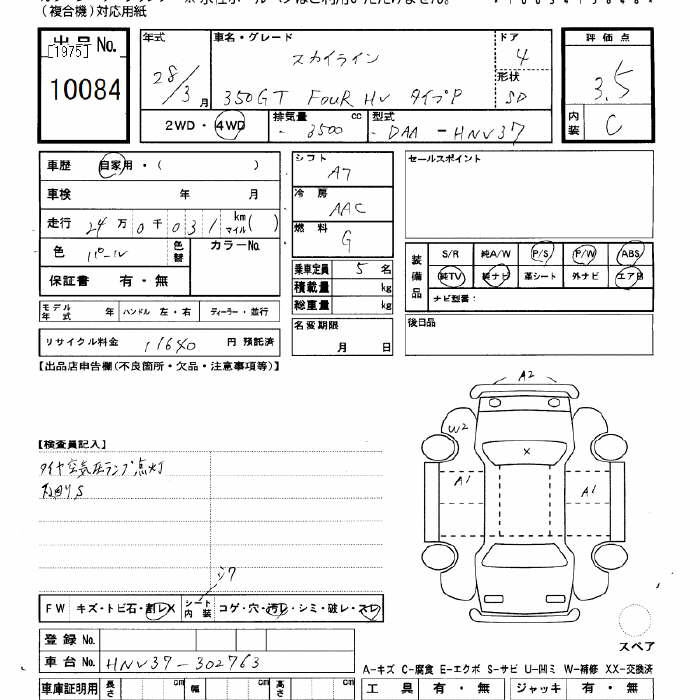 (複合機)対応用紙
出品No.
[1975]
10084
年式 28/3 月
車名・グレード スカイライン
350GT FOUR HV タイプP
ドア 4
形状 SD
2WD・4WD
排気量 3500 cc
型式 DAA-HNV37
評価点 3.5
内装 C
車歴 自家用・( )
車検 年 月
走行 24万0千031 km マイル( )
色 パール
色替
カラーNo.
保証書 有・無
モデル年式 年 ハンドル 左・右 ディーラー・並行
リサイクル料金 11640 円 預託済
シフト A7
冷房 AAC
燃料 G
乗車定員 5 名
積載量 kg
総重量 kg
名変期限
月 日
セールスポイント
装備品
S/R 純A/W P/S P/W ABS
純TV 純ナビ 革シート 外ナビ エアB
ナビ型番:
後日品
【出品店申告欄(不良箇所・欠品・注意事項等)】
【検査員記入】
タイヤ空気圧ランプ点灯
下回りS
シワ
A2
W2
X
A1
A1
スペア
FW キズ・トビ石・割レX
シート内装 コゲ・穴・汚レ・シミ・破レ・スレ
登録No.
車台No. HNV37-302763
A-キズ C-腐食 E-エクボ S-サビ U-凹ミ W-補修 XX-交換済
車庫証明用 長さ cm 幅 cm 高さ cm
工具 有・無 ジャッキ 有・無